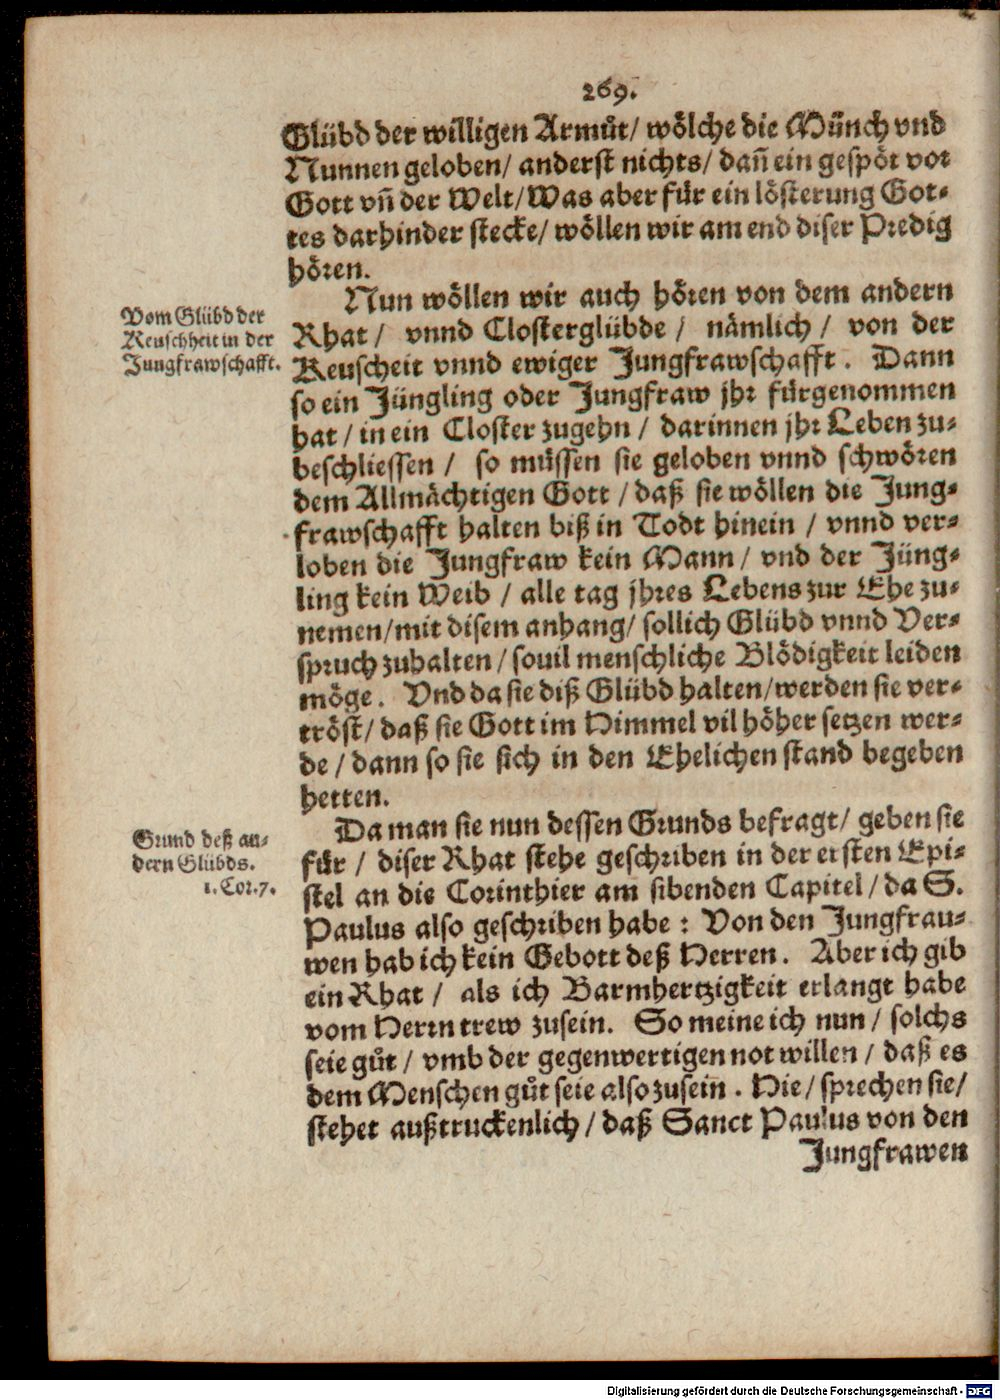 269.
Glübd der willigen Armůt/ wölche die Münch vnd
Nunnen geloben/ anderst nichts/ dañ ein gespöt vor
Gott vñ der Welt/ Was aber für ein lösterung Got-
tes darhinder stecke/ wöllen wir am end diser Predig
hören.
Nun wöllen wir auch hören von dem andern
Vom Glübd der
Keuschheit in der
Jungfrawschafft.
Rhat/ vnnd Closterglübde/ nämlich/ von der
Keuscheit vnnd ewiger Jungfrawschafft. Dann
so ein Jüngling oder Jungfraw jhr fürgenommen
hat/ in ein Closter zugehn/ darinnen jhr Leben zu-
beschliessen/ so müssen sie geloben vnnd schwören
dem Allmächtigen Gott/ daß sie wöllen die Jung-
frawschafft halten biß in Todt hinein/ vnnd ver-
loben die Jungfraw kein Mann/ vnd der Jüng-
ling kein Weib/ alle tag jhres Lebens zur Ehe zu-
nemen/ mit disem anhang/ sollich Glübd vnnd Ver-
spruch zuhalten/ souil menschliche Blödigkeit leiden
möge. Vnd da sie diß Glübd halten/ werden sie ver-
tröst/ daß sie Gott im Himmel vil höher setzen wer-
de/ dann so sie sich in den Ehelichen stand begeben
hetten.
Da man sie nun dessen Grunds befragt/ geben sie
Grund deß an-
dern Glübds.
1. Cor. 7.
für/ diser Rhat stehe geschriben in der ersten Epi-
stel an die Corinthier am sibenden Capitel/ da S.
Paulus also geschriben habe: Von den Jungfrau-
wen hab ich kein Gebott deß Herren. Aber ich gib
ein Rhat/ als ich Barmhertzigkeit erlangt habe
vom Herrn trew zusein. So meine ich nun/ solchs
seie gůt/ vmb der gegenwertigen not willen/ daß es
dem Menschen gůt seie also zusein. Hie/ sprechen sie/
stehet außtruckenlich/ daß Sanct Paulus von den
Jungfrawen
Digitalisierung gefördert durch die Deutsche Forschungsgemeinschaft - DFG